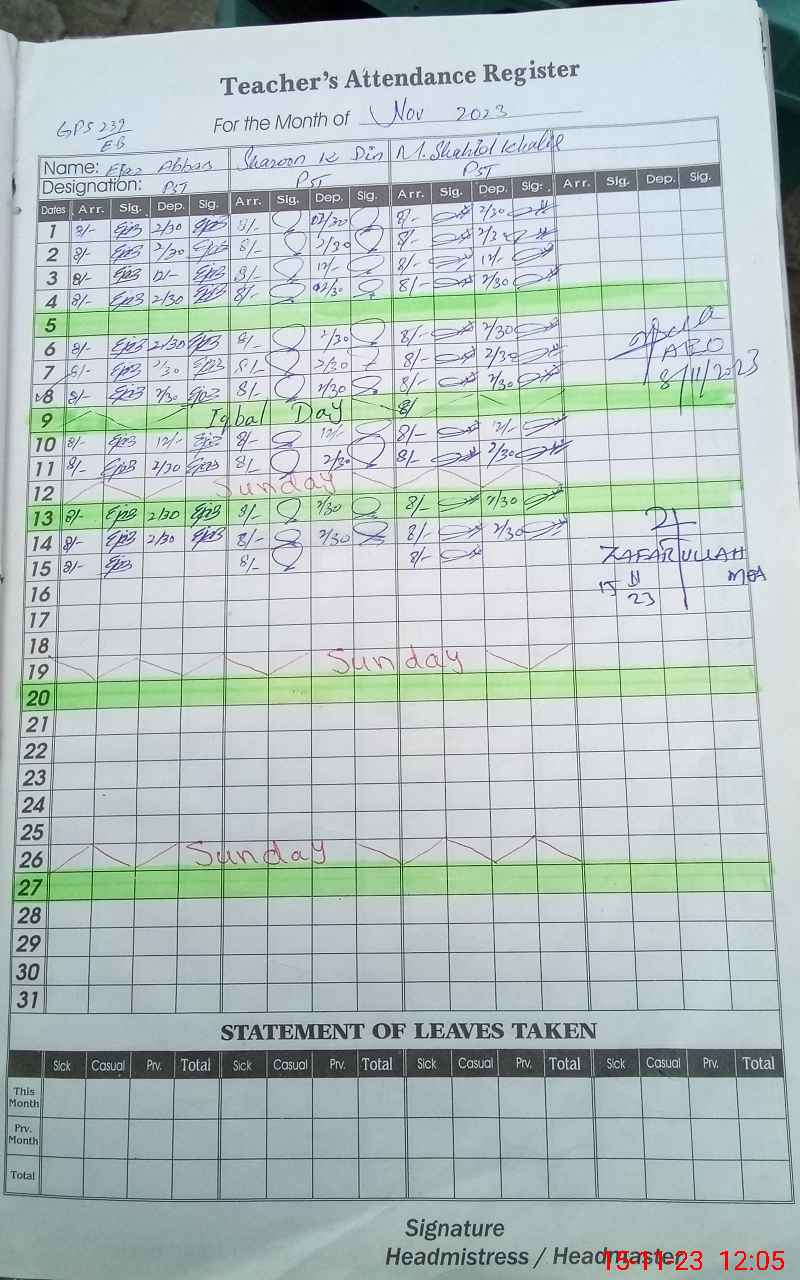 Teacher's Attendance Register
GPS 239
EB
For the Month of Nov 2023
Name: Ejaz Abbas Sharoon K Din M. Shahid Khalil
Designation: PST PST PST
Dates Arr. Sig. Dep. Sig. Arr. Sig. Dep. Sig. Arr. Sig. Dep. Sig. Arr. Sig. Dep. Sig.
1 8/- 2/30 8/- 2/30 8/- 2/30
2 8/- 2/30 8/- 2/30 8/- 2/30
3 8/- 12/- 8/- 12/- 8/- 12/-
4 8/- 2/30 8/- 2/30 8/- 2/30
5
6 8/- 2/30 8/- 2/30 8/- 2/30
7 8/- 2/30 8/- 2/30 8/- 2/30
AEO
8 8/- 2/30 8/- 2/30 8/- 2/30
8/11/2023
9 Iqbal Day 8/
10 8/- 12/- 8/- 12/- 8/- 12/-
11 8/- 2/30 8/- 2/30 8/- 2/30
12 Sunday
13 8/- 2/30 8/- 2/30 8/- 2/30
14 8/- 2/30 8/- 2/30 8/- 2/30
15 8/- 8/- 8/-
ZAFAR ULLAH
MEA
15 11 23
16
17
18
19 Sunday
20
21
22
23
24
25
26 Sunday
27
28
29
30
31
STATEMENT OF LEAVES TAKEN
Sick Casual Prv. Total Sick Casual Prv. Total Sick Casual Prv. Total Sick Casual Prv. Total
This Month
Prv. Month
Total
Signature
Headmistress / Headmaster
15-11-23 12:05